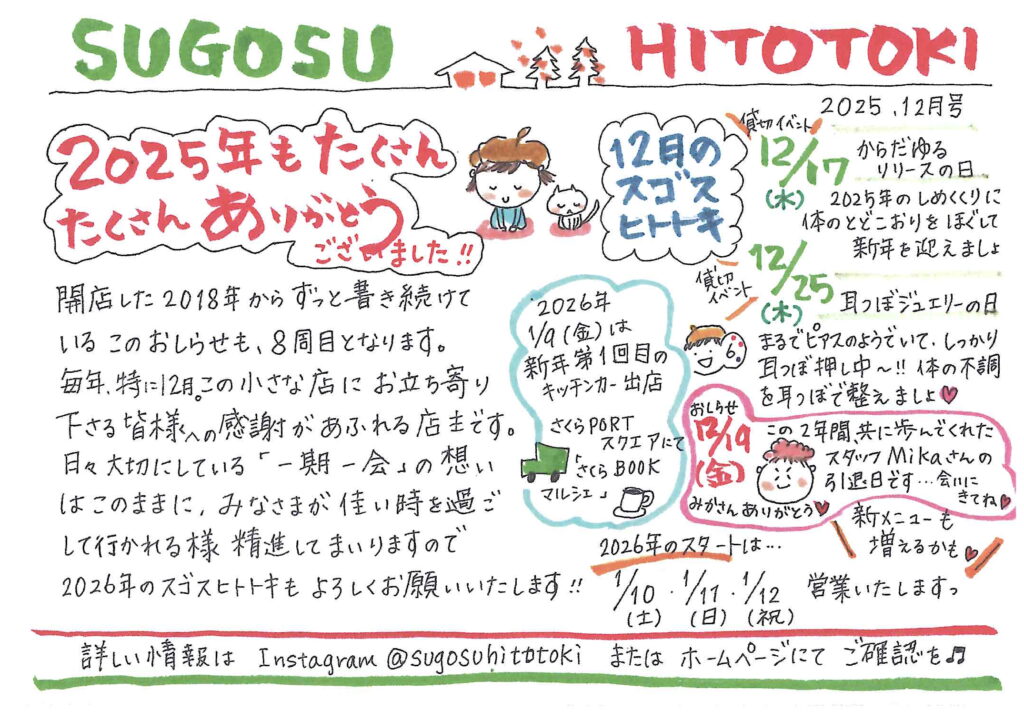 SUGOSU HITOTOKI
2025.12月号
2025年もたくさん
たくさんありがとう
ございました!!
開店した2018年からずっと書き続けて
いるこのおしらせも、8周目となります。
毎年、特に12月。この小さな店にお立ち寄り
下さる皆様への感謝があふれる店主です。
日々大切にしている「一期一会」の想い
はこのままに、みなさまが佳い時を過ご
して行かれる様 精進してまいりますので
2026年のスゴスヒトトキも よろしくお願いいたします!!
12月の
スゴス
ヒトトキ
貸切イベント
12/17
(水)
からだゆる
リリースの日
2025年のしめくくりに
体のとどこおりをほぐして
新年を迎えましょ
貸切
イベント
12/25
(木)
耳つぼジュエリーの日
まるでピアスのようでいて、しっかり
耳つぼ押し中〜!! 体の不調
を耳つぼで整えましょ♥
2026年
1/9(金)は
新年第1回目の
キッチンカー出店
さくらPORT
スクエアにて
「さくらBOOK
マルシェ」
おしらせ
12/19
(金)
この2年間、共に歩んでくれた
スタッフMikaさんの
引退日です…会いに
きてね♥
みかさんありがとう♥
新メニューも
増えるかも♥
2026年のスタートは…
1/10・1/11・1/12 営業いたしますっ
(土) (日) (祝)
詳しい情報は Instagram @sugosuhitotoki または ホームページにて ご確認を♬